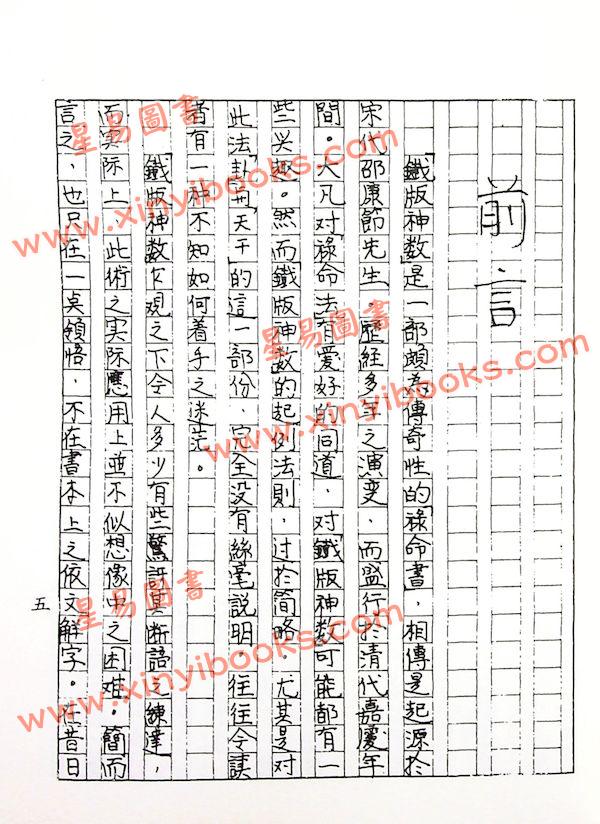 前言
「鐵版神数」是一部頗為傳奇性的「祿命書」，相傳是起源於
宋代邵康節先生。歷經多年之演变，而盛行於清代嘉慶年
間。大凡对「祿命法」有爱好的同道，对「鐵版神数」可能都有一
些兴趣。然而「鐵版神数」的起例法則，过於简略。尤其是对
此法「卦用天干」的這一部份，完全没有絲毫説明。往往令讀
者有一种不知如何着手之迷茫。
「鐵版神数」乍观之下令人多少有些驚訝其断語之鍊達，
而实际上，此術之实际應用上並不似想像中之困难。簡而
言之，也只在一点領悟，不在書本上之依文解字。在昔日
五
星易圖書
www.xinyibooks.com
星易圖書
www.xinyibooks.com
星易圖書
www.xinyibooks.com